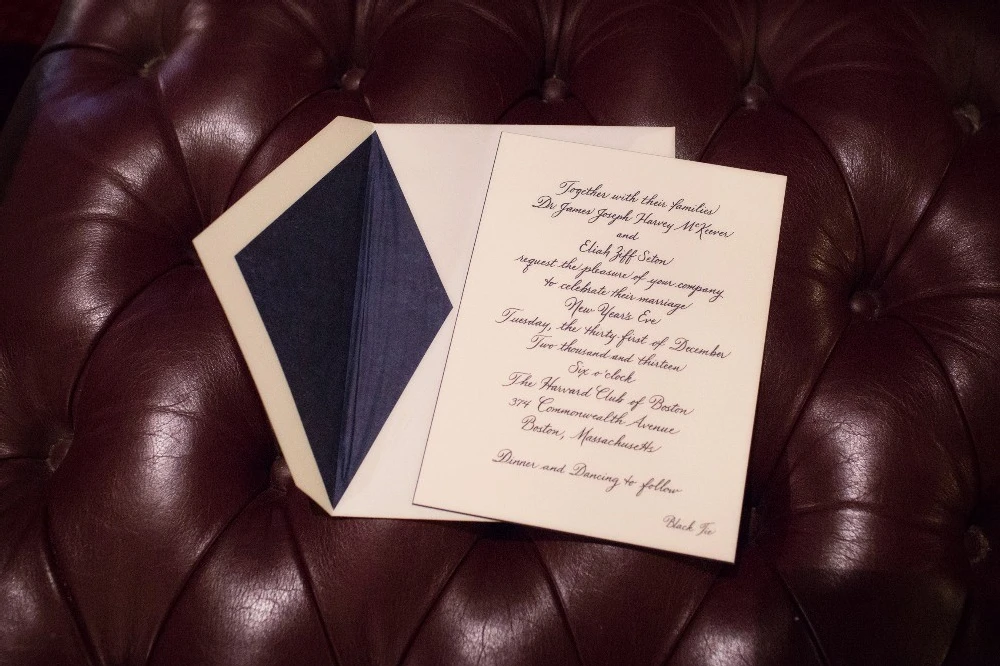 Together with their families
Dr James Joseph Harvey McKeever
and
Eliah Ziff Seton
request the pleasure of your company
to celebrate their marriage
New Year's Eve
Tuesday, the thirty-first of December
Two thousand and thirteen
Six o'clock
The Harvard Club of Boston
374 Commonwealth Avenue
Boston, Massachusetts
Dinner and Dancing to follow
Black Tie